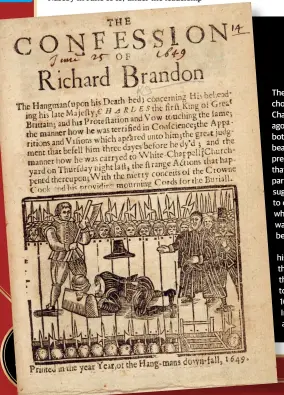 THE
CONFESSION 14
June 25 OF 1649
Richard Brandon
The Hangman (upon his Death-bed) concerning His behead-
ing his late Majesty, CHARLES the first King of Great
Brittain; and his Protestation and Vow touching the same;
the manner how he was terrified in Conscience; the Appa-
ritions and Visions which apeared unto him; the great judg-
ment that befell him three dayes before he dy'd; and the
manner how he was carryed to White-Chappell Church-
yard on Thursday night last, the strange Actions that hap-
pened thereupon; With the merry conceits of the Crowne
Cook and his providing mourning Cords for the Buriall.
Printed in the year Year, of the Hang-mans down-fall, 1649.
The
cho
Cha
ago
bot
bea
pre
tha
par
sug
to
wh
wa
be
his
th
th
to